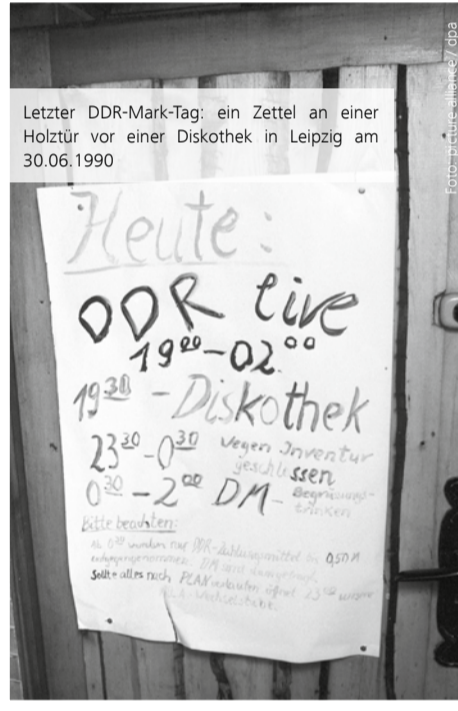 Letzter DDR-Mark-Tag: ein Zettel an einer
Holztür vor einer Diskothek in Leipzig am
30.06.1990
Foto: picture alliance / dpa
Heute:
DDR live
19⁰⁰-02.⁰⁰
19³⁰ - Diskothek
23³⁰-0³⁰ Wegen Inventur
geschlossen
0³⁰ - 2⁰⁰ DM- Begrüssungs-
trinken
Bitte beachten:
nur DDR-Zahlungsmittel bis 0,50 M
DM
Sollte alles nach PLAN verlaufen öffnet 23⁰⁰ unsere
Wechselstube.